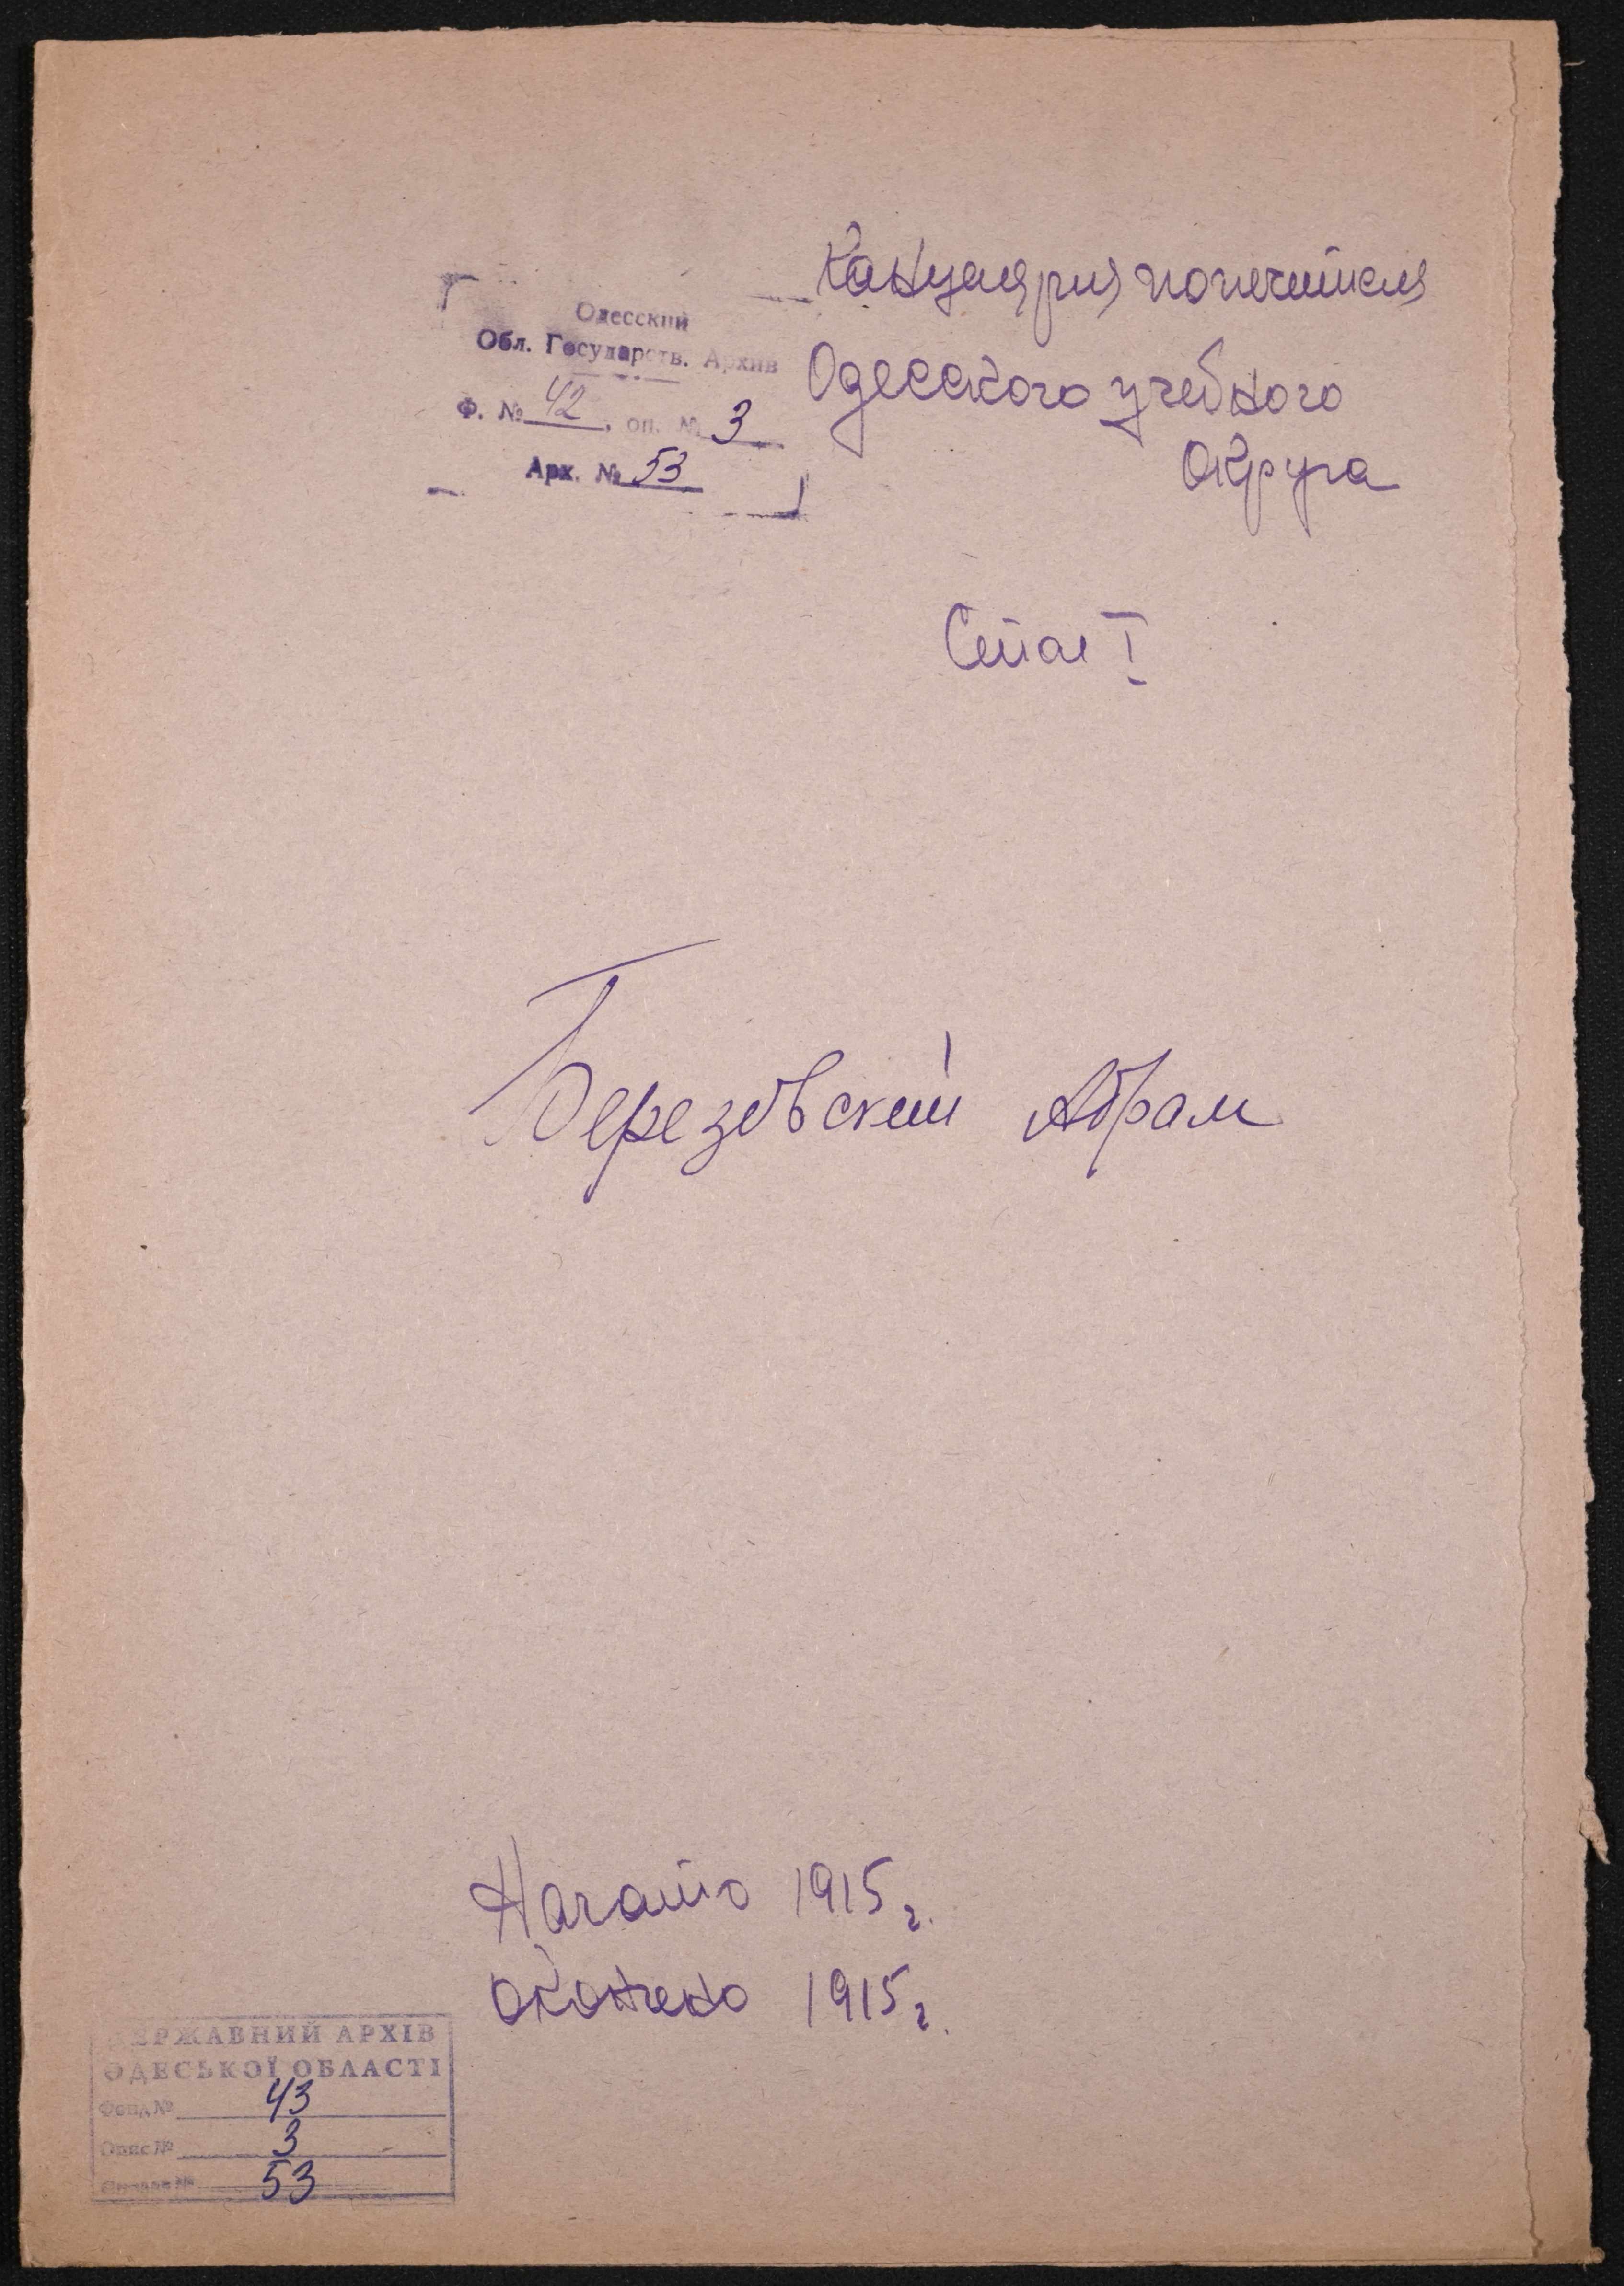 Канцелярия попечителя
Одесского учебного
округа
Одесский
Обл. Государств. Архив
Ф. № 42, оп. № 3
Арх. № 53
Стол I
Березовский Абрам
Начато 1915 г.
Окончено 1915 г.
ДЕРЖАВНИЙ АРХІВ
ОДЕСЬКОЇ ОБЛАСТІ
Фонд № 43
Опис № 3
53